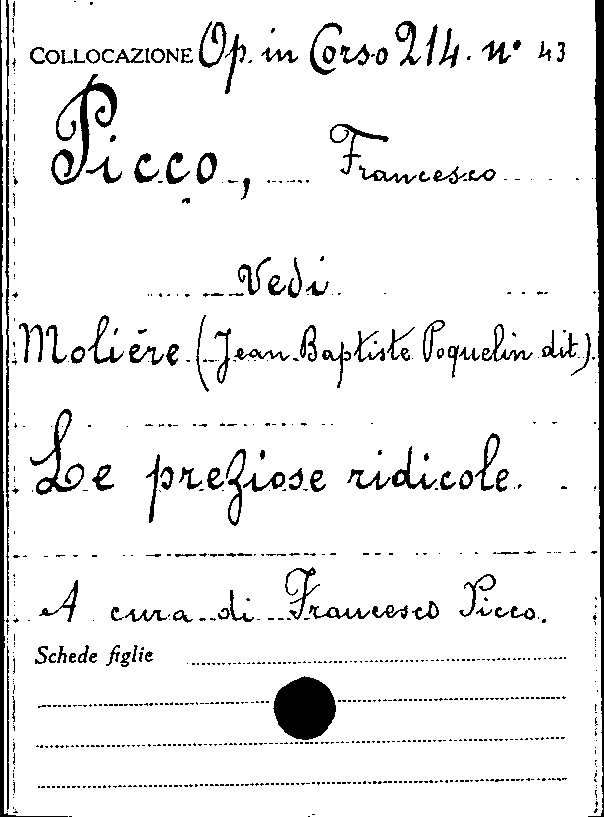 COLLOCAZIONE Op. in Corso 214. n° 43
Picco, Francesco
Vedi
Moliére (Jean Baptiste Poquelin dit)
Le preziose ridicole.
A cura di Francesco Picco.
Schede figlie